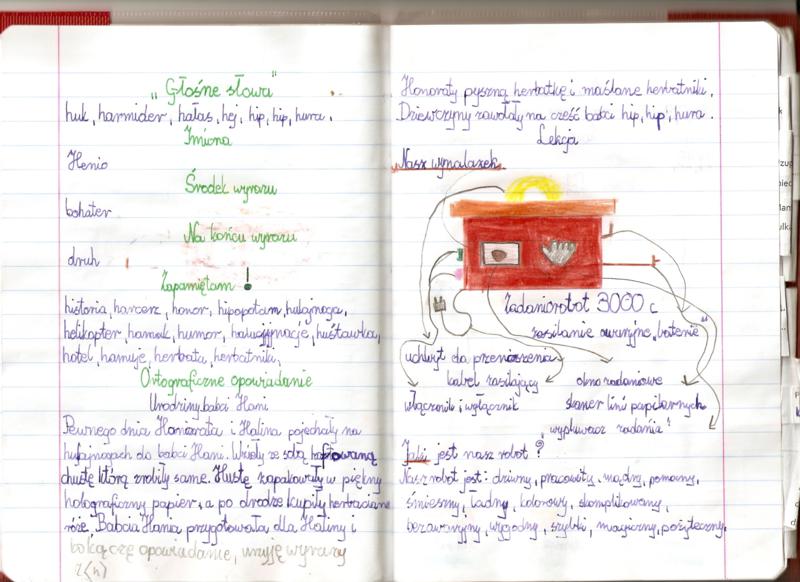 „Głośne słowa"
huk, harmider, hałas, hej, hip, hip, hura.
Imiona
Henio
Środek wyrazu
bohater
Na końcu wyrazu
druh
Zapamiętam!
historia, harcerz, honor, hipopotam, hulajnoga,
helikopter, hamak, humor, halucynacje, huśtawka,
hotel, hamuje, herbata, herbatniki.
Ortograficzne opowiadanie
Urodziny babci Hani
Pewnego dnia Honorata i Halina pojechały na
hulajnogach do babci Hani. Wzięły ze sobą haftowaną
chustę którą zrobiły same. Hustę zapakowały w piękny
holograficzny papier, a po drodze kupiły herbaciane
róże. Babcia Hania przygotowała dla Haliny i
kończę opowiadanie, używając wyrazy
z (h)
Honoraty pyszną herbatkę i maślane herbatniki.
Dziewczyny zawołały na cześć babci hip, hip, hura.
Lekcja
Nasz wynalazek
Zadaniorobot 3000 c
zasilanie awaryjne „baterie"
uchwyt do przenoszenia
kabel zasilający
okno zadaniowe
włącznik i wyłącznik
skaner linii papilarnych
wypluwacz zadania
Jaki jest nasz robot?
Nasz robot jest: dziwny, pracowity, mądry, pomocny,
śmieszny, ładny, kolorowy, skomplikowany,
bezawaryjny, wygodny, szybki, magiczny, pożyteczny.